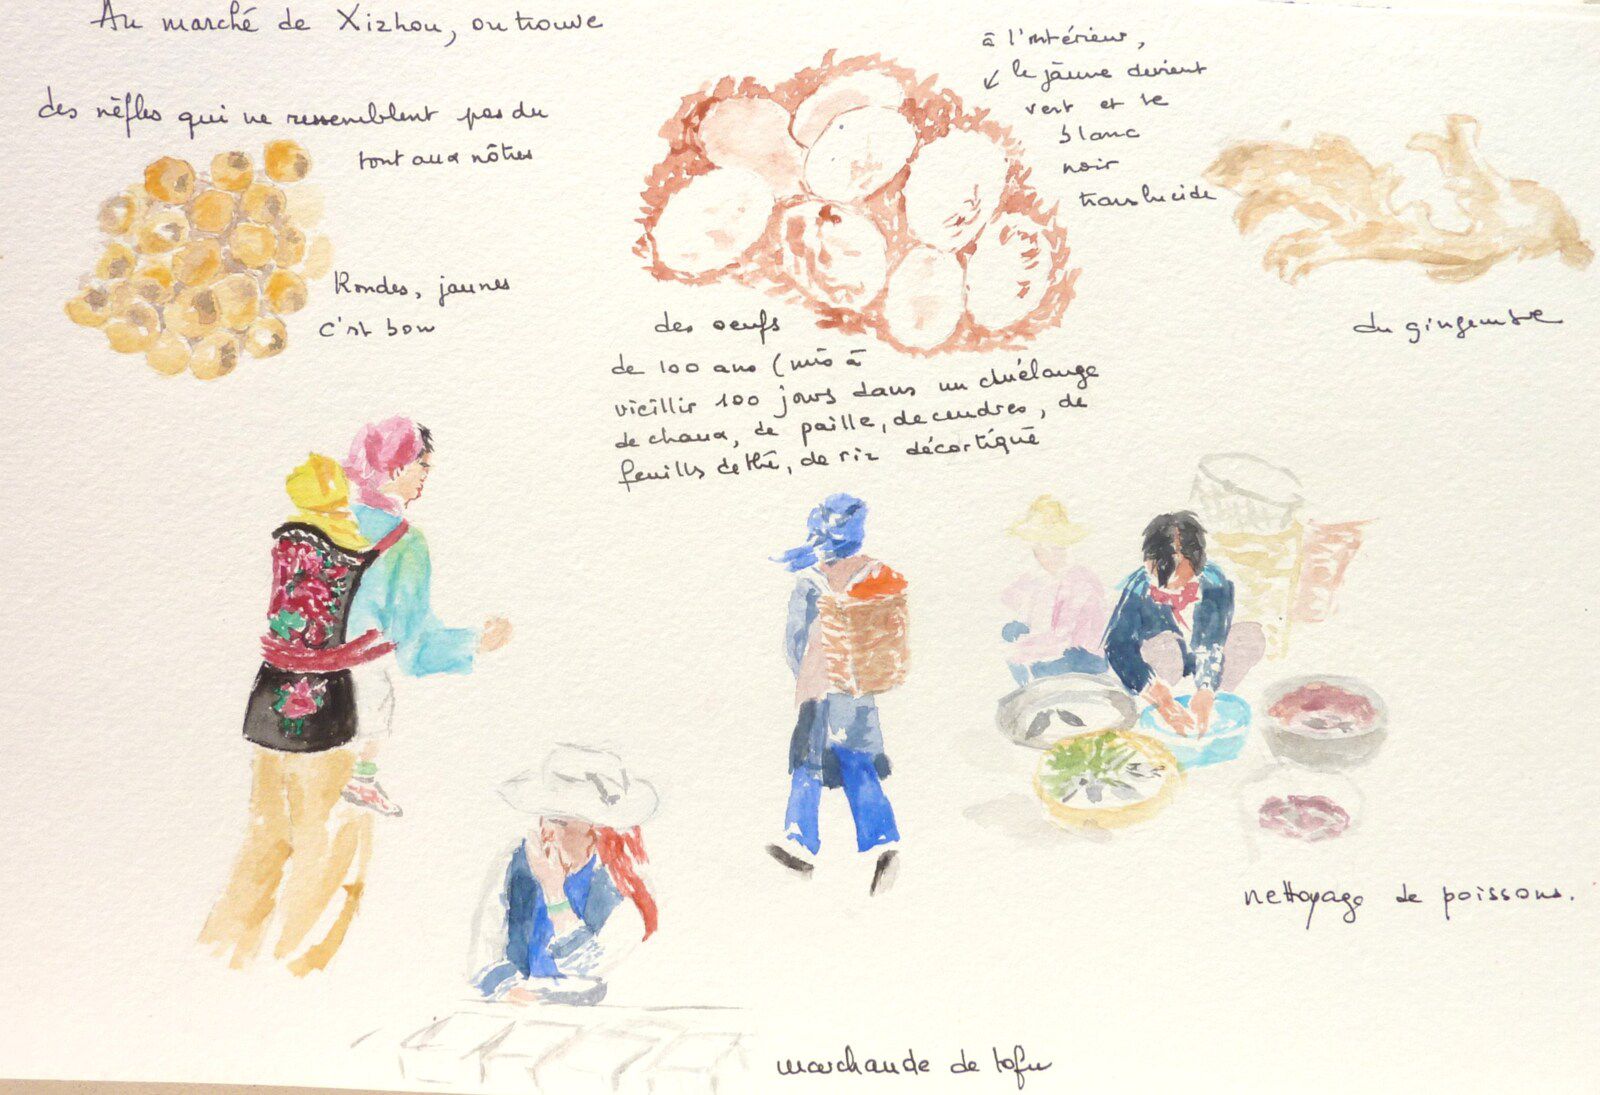 Au marché de Xizhou, on trouve
des nèfles qui ne ressemblent pas du
tout aux nôtres
Rondes, jaunes
c'est bon
à l'intérieur,
le jaune devient
vert et le
blanc
noir
translucide
des oeufs
de 100 ans (mis à
vieillir 100 jours dans un mélange
de chaux, de paille, de cendres, de
feuilles de thé, de riz décortiqué
du gingembre
nettoyage de poissons.
marchande de tofu